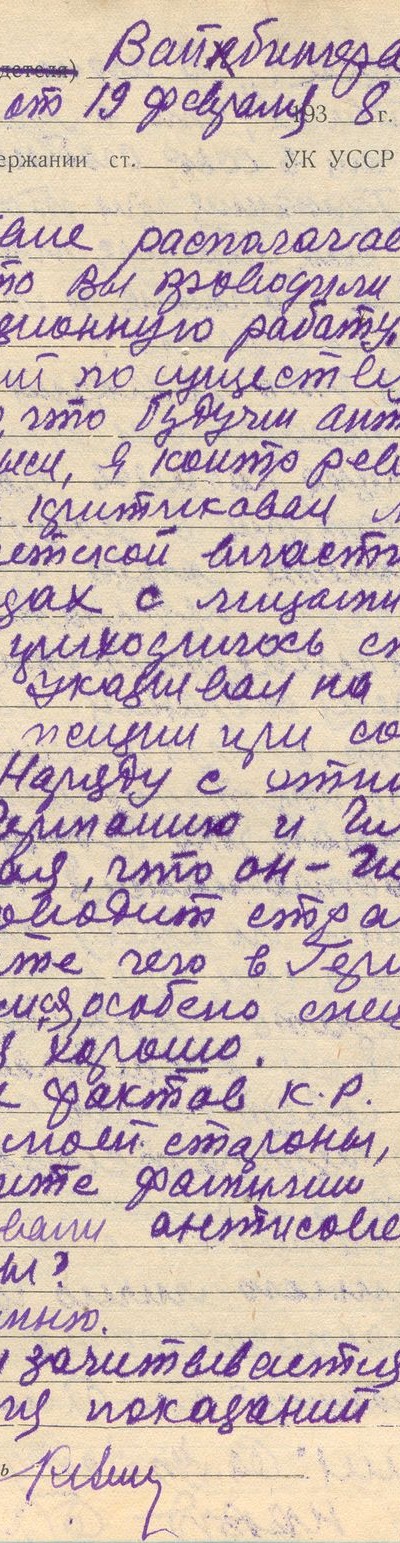 детеля) Вайхбингера
от 19 февраля 1938 г.
ержании ст. УК УССР
вие располагае
то Вы проводили
ционную работу.
ит по существу
, что будучи ант
мси, я контр рев
критиковал
етской власти
дах с лицами
приходилось
указывал на
жизни при со
Наряду с этим
Германию и Ги
ая, что он - Ги
оводит стра
те чего в Гер
ися, особено
я хорошо.
х фактов к.р.
моей стороны,
ите фамилии
вали антисове
ы?
мню.
и зачитывается
тя показаний
ь